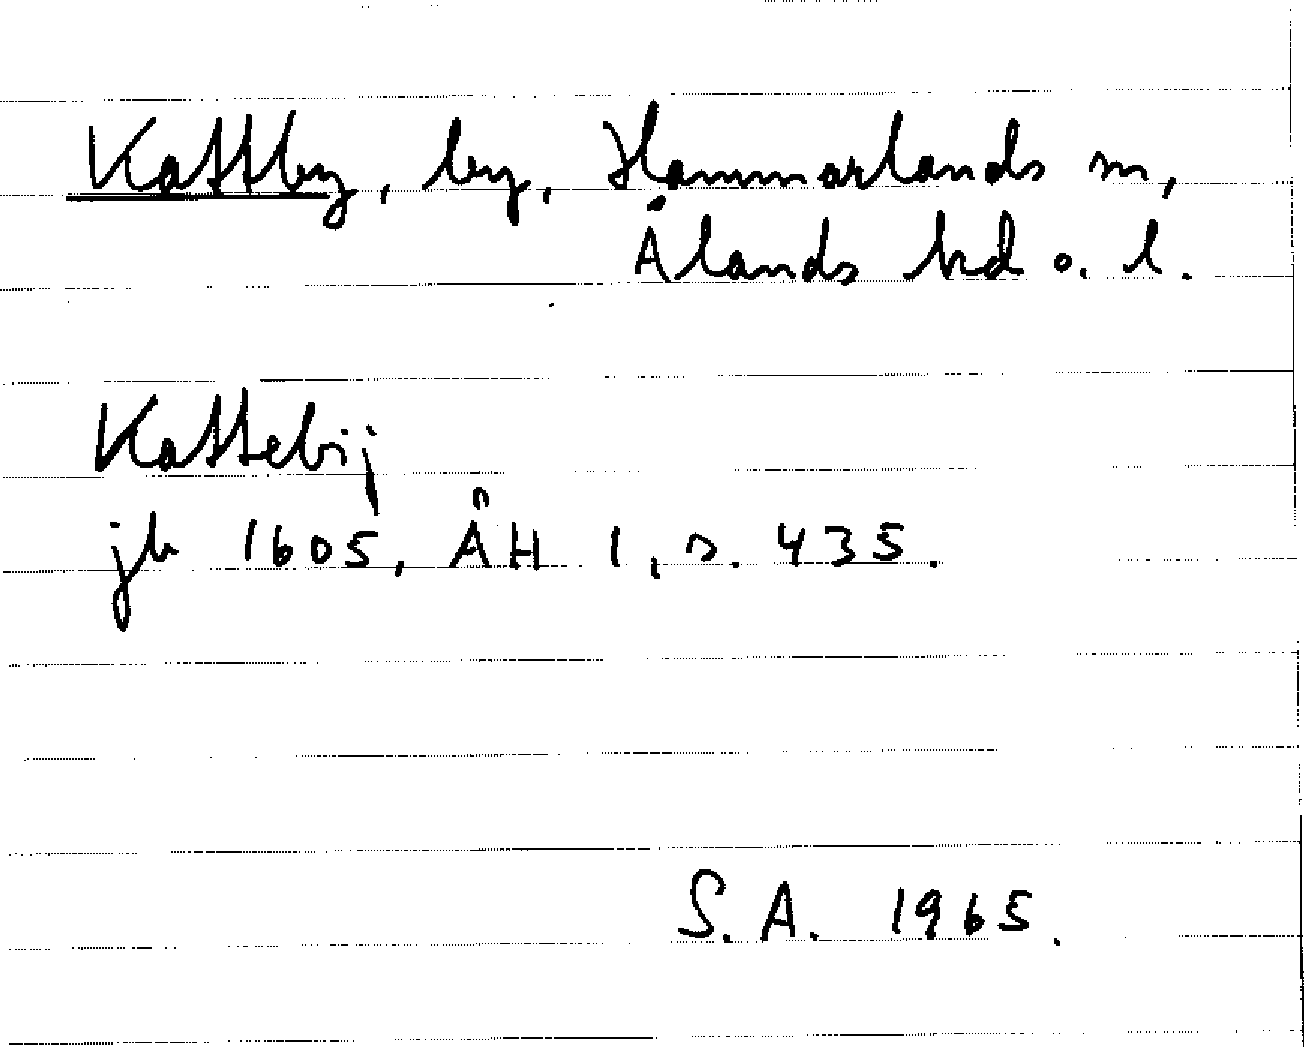 Kattby, by, Hammarlands sn,
Ålands hd o. l.
Kattebij
jb 1605, ÅH 1, s. 435.
S.A. 1965.